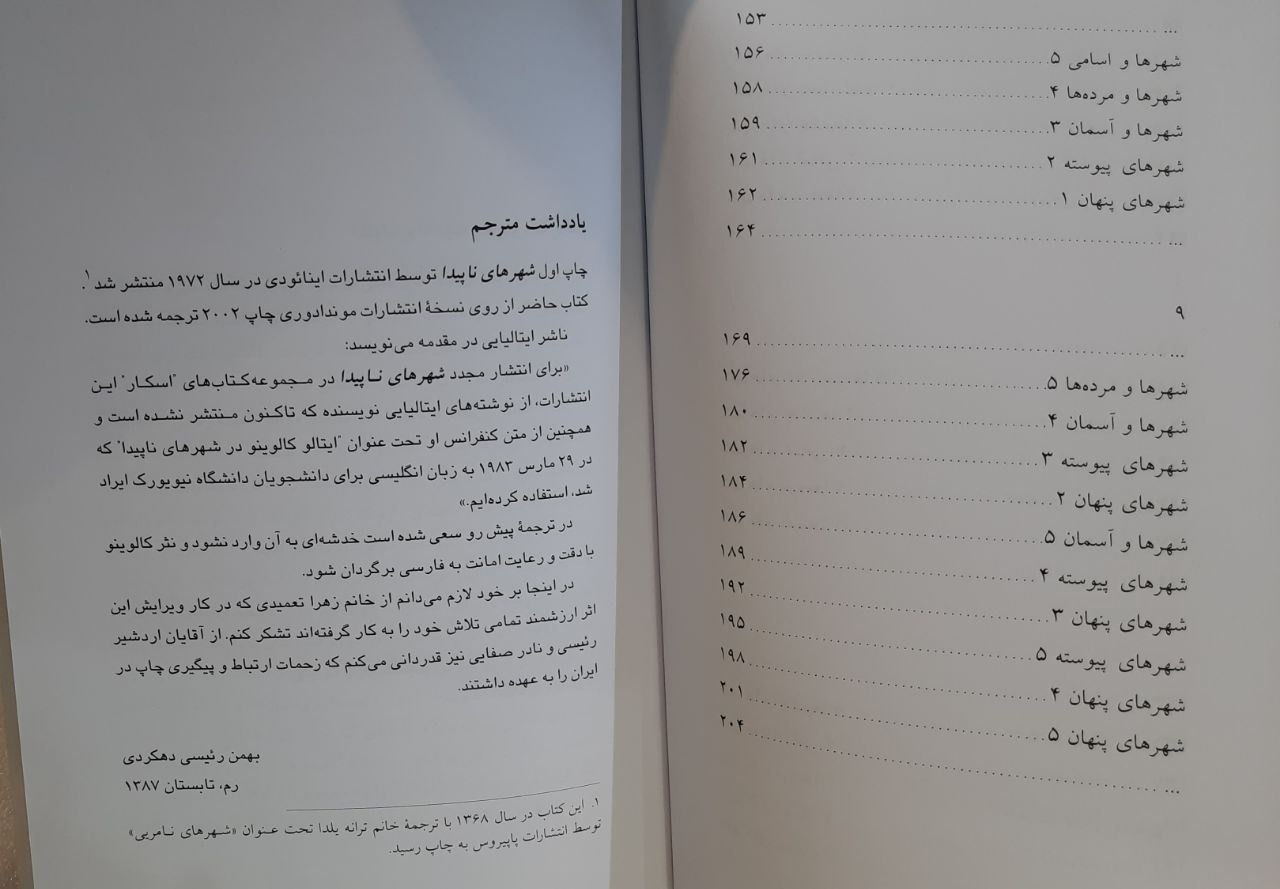 ... ۱۵۳
شهرها و اسامی ۵ ۱۵۶
شهرها و مرده‌ها ۴ ۱۵۸
شهرها و آسمان ۳ ۱۵۹
شهرهای پیوسته ۲ ۱۶۱
شهرهای پنهان ۱ ۱۶۲
... ۱۶۴
۹
... ۱۶۹
شهرها و مرده‌ها ۵ ۱۷۶
شهرها و آسمان ۴ ۱۸۰
شهرهای پیوسته ۳ ۱۸۲
شهرهای پنهان ۲ ۱۸۴
شهرها و آسمان ۵ ۱۸۶
شهرهای پیوسته ۴ ۱۸۹
شهرهای پنهان ۳ ۱۹۲
شهرهای پیوسته ۵ ۱۹۵
شهرهای پنهان ۴ ۱۹۸
شهرهای پنهان ۵ ۲۰۱
... ۲۰۴
یادداشت مترجم
چاپ اول شهرهای ناپیدا توسط انتشارات اینائودی در سال ۱۹۷۲ منتشر شد.۱
کتاب حاضر از روی نسخهٔ انتشارات موندادوری چاپ ۲۰۰۲ ترجمه شده است.
ناشر ایتالیایی در مقدمه می‌نویسد:
«برای انتشار مجدد شهرهای ناپیدا در مجموعه‌کتاب‌های "اسکار" این
انتشارات، از نوشته‌های ایتالیایی نویسنده که تاکنون منتشر نشده است و
همچنین از متن کنفرانس او تحت عنوان "ایتالو کالوینو در شهرهای ناپیدا" که
در ۲۹ مارس ۱۹۸۳ به زبان انگلیسی برای دانشجویان دانشگاه نیویورک ایراد
شد، استفاده کرده‌ایم.»
در ترجمهٔ پیش رو سعی شده است خدشه‌ای به آن وارد نشود و نثر کالوینو
با دقت و رعایت امانت به فارسی برگردان شود.
در اینجا بر خود لازم می‌دانم از خانم زهرا تعمیدی که در کار ویرایش این
اثر ارزشمند تمامی تلاش خود را به کار گرفته‌اند تشکر کنم. از آقایان اردشیر
رئیسی و نادر صفایی نیز قدردانی می‌کنم که زحمات ارتباط و پیگیری چاپ در
ایران را به عهده داشتند.
بهمن رئیسی دهکردی
رم، تابستان ۱۳۸۷
۱. این کتاب در سال ۱۳۶۸ با ترجمهٔ خانم ترانه یلدا تحت عنوان «شهرهای نامریی»
توسط انتشارات پاپیروس به چاپ رسید.